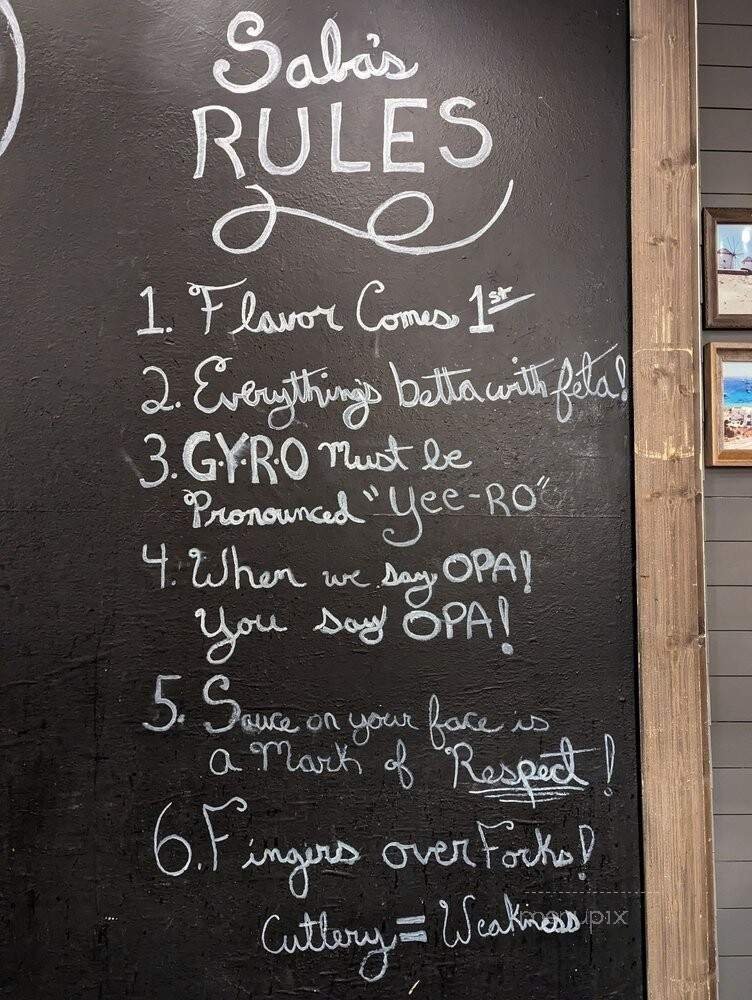 Saba's
RULES
1. Flavor Comes 1st
2. Everything's betta with feta!
3. G.Y.R.O Must be
Pronounced "Yee-RO"
4. When we say OPA!
You say OPA!
5. Sauce on your face is
a Mark of Respect!
6. Fingers over Forks!
Cutlery = Weakness
menupix